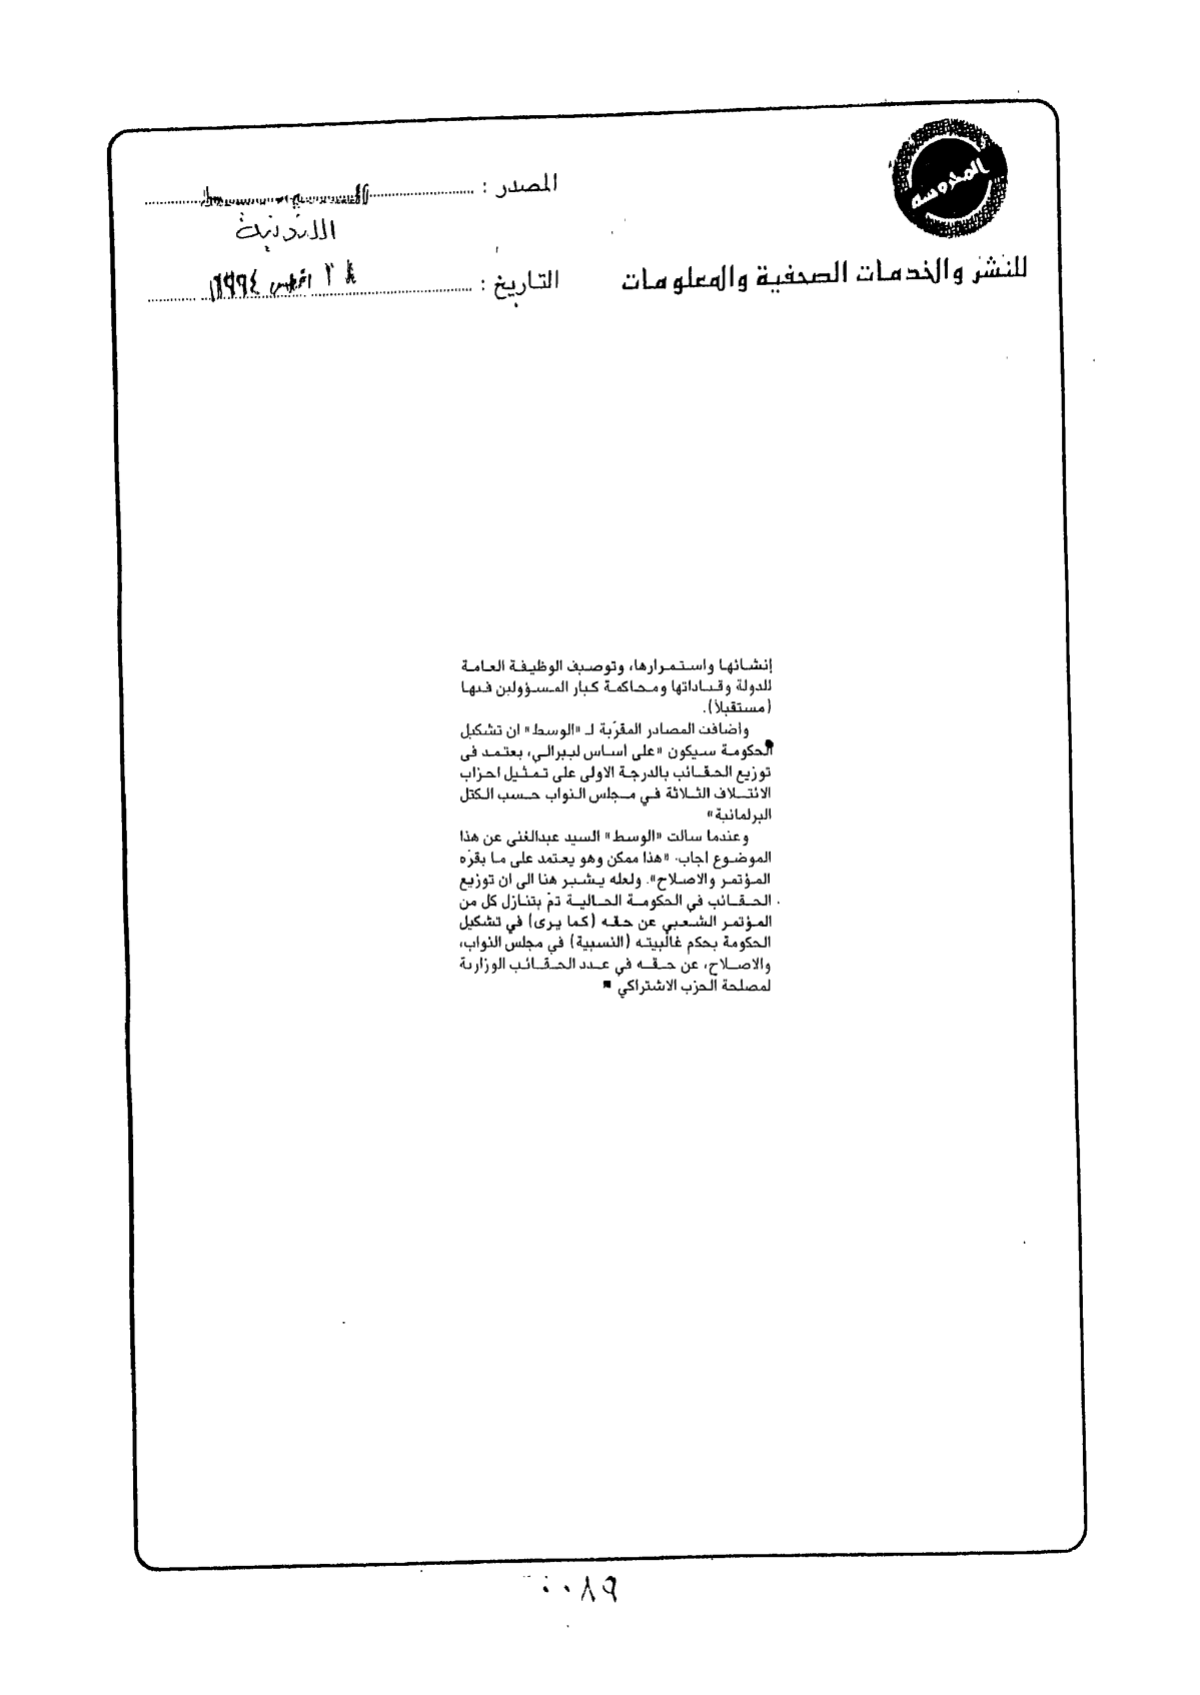 المحروسة
للنشر والخدمات الصحفية والمعلومات
المصدر :
الأردنية
التاريخ : ٢٨ أغسطس ١٩٩٤
إنشائها واستمرارها، وتوصيف الوظيفة العامة
للدولة وقياداتها ومحاكمة كبار المسؤولين فيها
(مستقبلاً).
وأضافت المصادر المقرّبة لـ «الوسط» ان تشكيل
الحكومة سيكون «على أساس ليبرالي، يعتمد في
توزيع الحقائب بالدرجة الاولى على تمثيل احزاب
الائتلاف الثلاثة في مجلس النواب حسب الكتل
البرلمانية»
وعندما سالت «الوسط» السيد عبدالغني عن هذا
الموضوع اجاب. «هذا ممكن وهو يعتمد على ما يقرّه
المؤتمر والاصلاح». ولعله يشير هنا الى ان توزيع
الحقائب في الحكومة الحالية تمّ بتنازل كل من
المؤتمر الشعبي عن حقه (كما يرى) في تشكيل
الحكومة بحكم غالبيته (النسبية) في مجلس النواب،
والاصلاح، عن حقه في عدد الحقائب الوزارية
لمصلحة الحزب الاشتراكي ■
٠٠٨٩